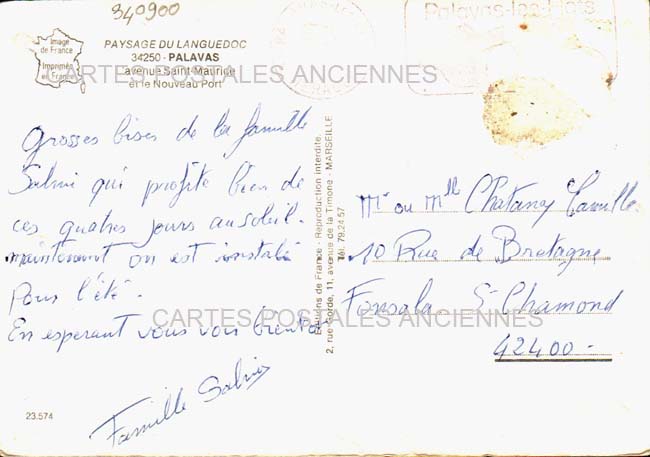 340900
Palavas-les-Flots
Image
de France
Imprimée
en France
PAYSAGE DU LANGUEDOC
34250 - PALAVAS
avenue Saint-Maurice
et le Nouveau Port
CARTES POSTALES ANCIENNES
Grosses bises de la famille
Salvi qui profite bien de
ces quatres jours au soleil.
maintenant on est installé
Pour l'été.
En esperant vous voir bientot
Famille Salvi
23.574
Editions de France - Reproduction interdite.
2, rue Sorde, 11, avenue de la Timone - MARSEILLE
Tél. 79.24.57
Mr ou Mlle Chatanay Camille
10 Rue de Bretagne
Fonsala St Chamond
42400 -
CARTES POSTALES ANCIENNES